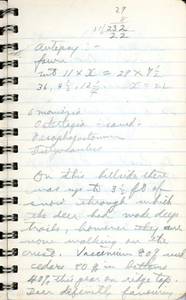 29
8
232
22
Autopsy: -
fawn
into 11 x X = 28 x 8 1/2
6 monezia
On this hillside there
was up to 3 1/2 ft of
snow through which
the deer had made deep
trails, however they are
now walking on the
crust. Vaccinium 90% used
cedars 80% in bottoms
40% this year on ridge top
Deer definitely